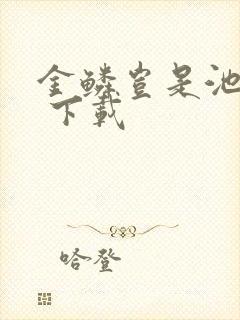 金鳞岂是池
下载
哈登